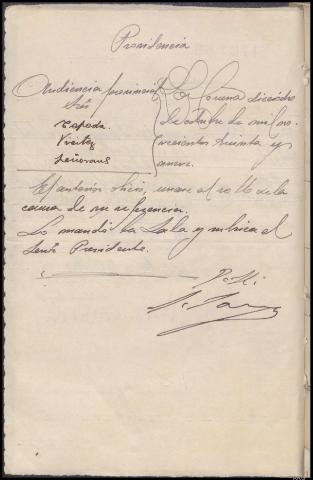 Presidencia
Audiencia provincial
Sres
Tapada
Vieitez
Señorans
La Coruña dieciocho
de octubre de mil no-
vecientos treinta y
nueve.
El anterior oficio, unase al rollo de la
causa de su referencia.
Lo mandó la Sala y rubrica el
Señor Presidente.